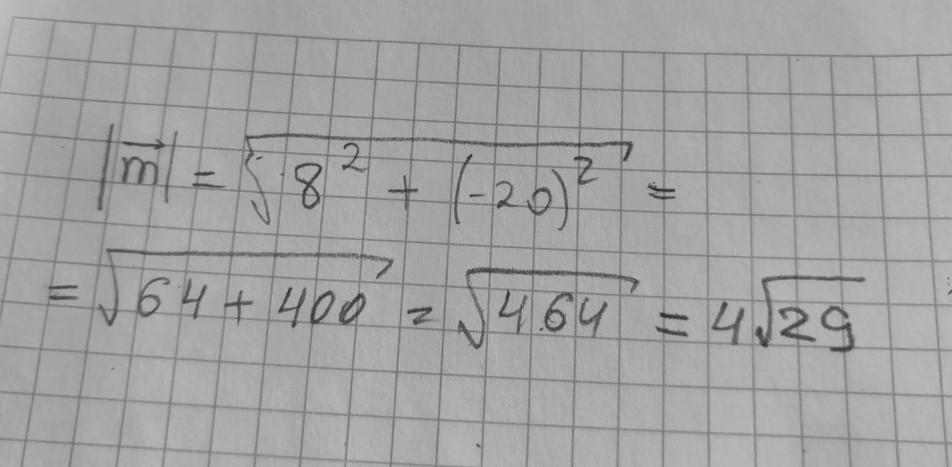 |m⃗| = √(8² + (-20)²) =
= √(64 + 400) = √(464) = 4√(29)